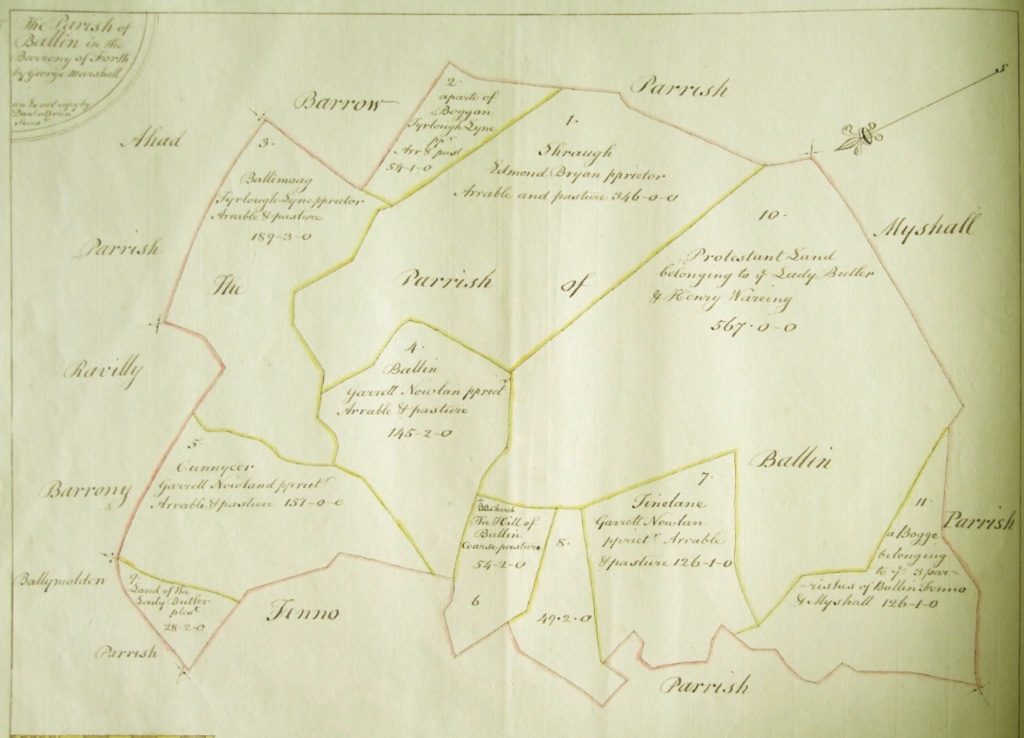 The Parish of
Ballin in the
Barrony of Forth
by George Marshall
an Exact copy by
Ahad
Barrow
Parrish
Parrish
Ravilly
Barrony
Ballymolden
Parrish
S
Myshall
Parrish
Fenno
Parrish
The
Parrish of
Ballin
2.
aparte of
Boggan
Tyrlough Lyne
ppr
Arr & past
54-1-0
1.
Shraugh
Edmond Bryan pprietor
Arrable and pasture 346-0-0
3.
Ballimoag
Tyrlough Lyne pprietor
Arrable & pasture
189-3-0
10.
Protestant Land
belonging to ye Lady Butler
& Henry Wareing
567-0-0
4.
Ballin
Garrett Nowlan ppriet
Arrable & pasture
145-2-0
5.
Cunnycer
Garrett Nowland ppriet
Arrable & pasture 151-0-0
9.
Land of the
Lady Butler
28-2-0
The Hill of
Ballin
Coarse pasture
54-2-0
6
8.
49-2-0
7.
Tinelane
Garrett Nowlan
ppriet Arrable
& pasture 126-1-0
11.
a Bogge
belonging
to ye 3 par-
rishes of Ballin Fenno
& Myshall 126-1-0